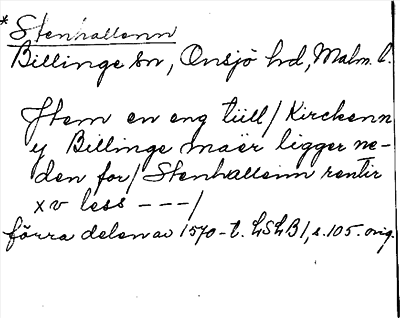 *Stenhallenn
Billinge sn, Onsjö hd, Malm. l.
Item en eng tiill/Kirckenn
y Billinge maer ligger ne-
den for/Stenhalleim rentir
xv less ---/
förra delen av 1570-t. LSLB1, s. 105. orig.